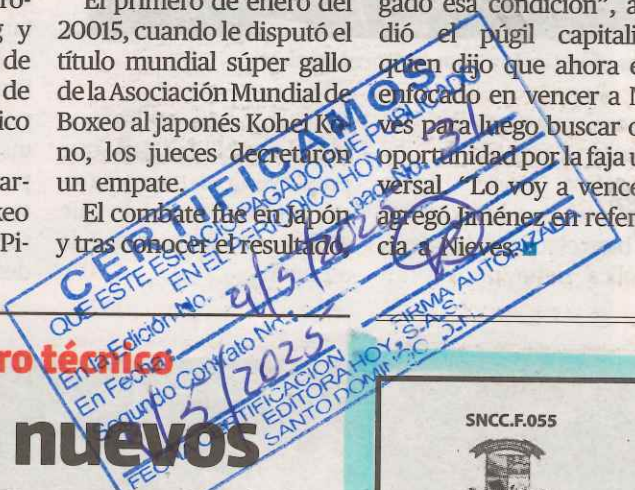 El primero de enero del
20015, cuando le disputó el
título mundial súper gallo
de la Asociación Mundial de
Boxeo al japonés Kohei
no, los jueces decretaron
un empate.
El combate fue en Japón
y tras conocer el resultado,
gado esa condición", a
dió el púgil capitali
quien dijo que ahora e
enfocado en vencer a N
ves para luego buscar
oportunidad por la faja u
versal. "Lo voy a vence
agregó Jiménez en refer
cia a Nieves.
g y
de
de
ico
ar-
xeo
Pi-
CERTIFICAMOS
QUE ESTE ESPACIO PAGADO FUE PUBLICADO
EN EL PERIODICO HOY
En la Edición No. pag. No. 31
En Fecha: 4/5/2025
Segundo Contrato No.:
2/5/2025
FECHA CERTIFICACION
FIRMA AUTORIZADA
EDITORA HOY, S.A.S.
SANTO DOMINGO, D.N.
ro técnico
nuevos
SNCC.F.055